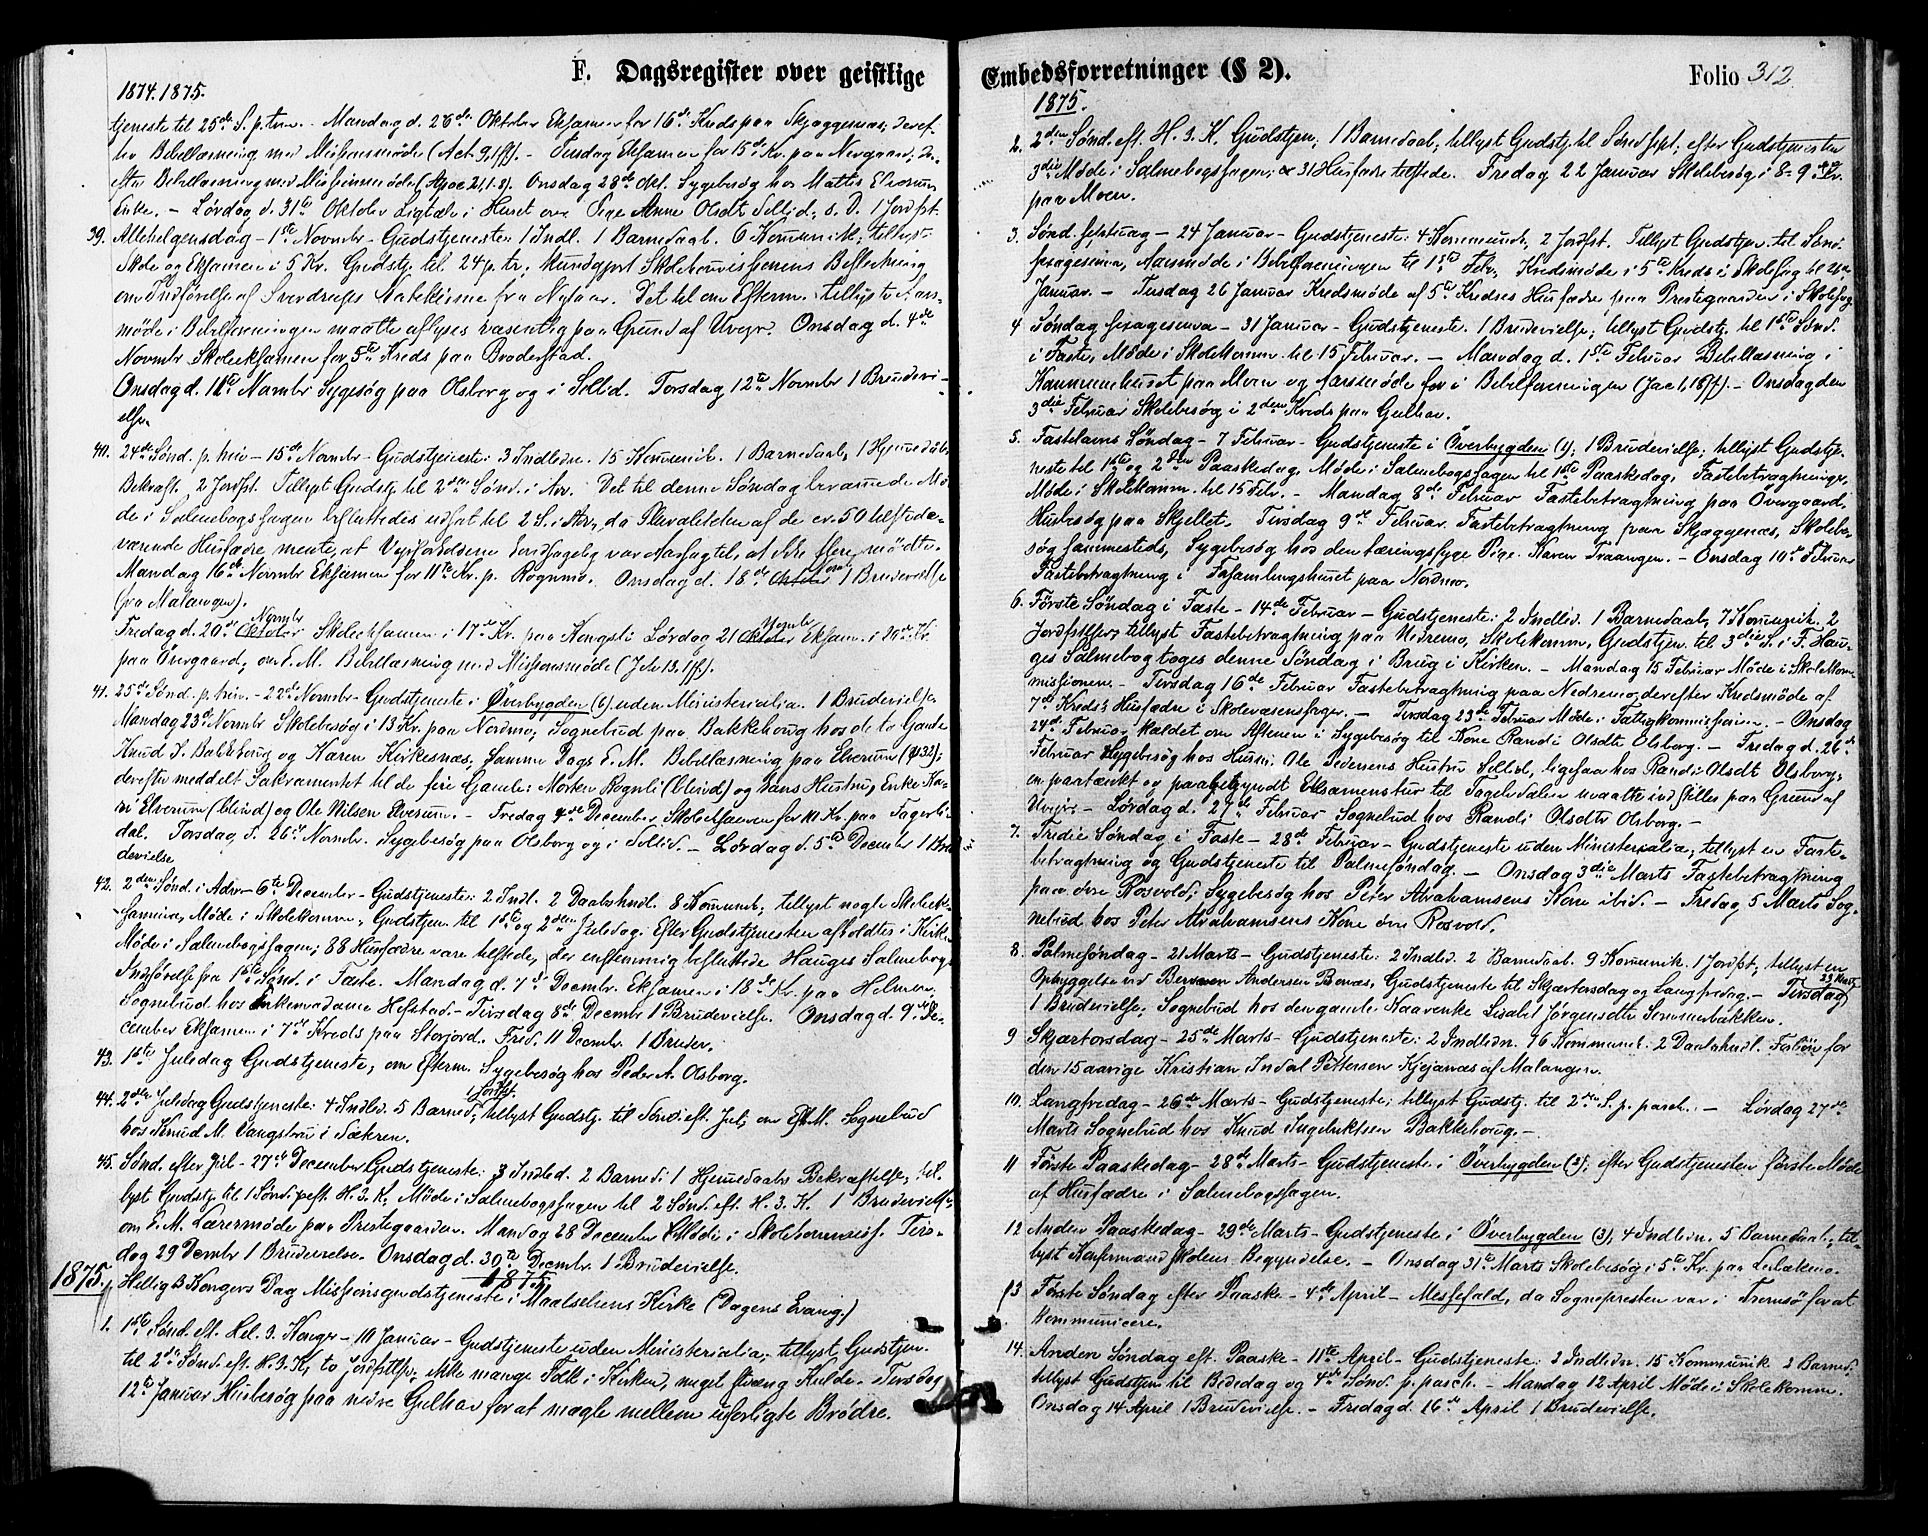 F. Dagsregister over geistlige
1874. 1875.
tjeneste til 25de S. p. trin. - Mandag d. 26de Oktober Eksamen for 16de Kreds paa Skjæggesnæs; deref-
ter Bibellæsning med Missionsmøde (Act. 9,1ff). - Tirsdag Eksamen for 15de Kr. paa
efter Bibellæsning med Missionsmøde (Apoc. 21,1-8). Onsdag 28de Okt. Sygebesøg hos Mattis
Enke. - Lørdag d. 31te Oktober Ligtale i Huset over Pige Anne Olsdt Sollid; s. D. 1 Jordfst.
39. Allehelgensdag - 1ste Novembr - Gudstjeneste: 1 Indl. 1 Barnedaab. 6 Kommunik.; tillyst
Skole og Eksamen i 5 Kr. Gudstj. til 24 p. tr.; kundgjort Skolekommissionens Beslutning
om Indførelse af Sverdrups Katekisme fra Nytaar. Det til om Efterm. tillyste Aars-
møde i Bibelforeningen maatte aflyses væsentlig paa Grund af Uvejr. Onsdag d. 4de
Novmbr Skoleeksamen for 5te Kreds paa Broderstad.
Onsdag d. 11te Novmbr Sygesøg paa Olsborg og i Sollid. Torsdag 12te Novmbr 1 Brudevi-
else.
40. 24de Sønd. p. trin - 15de Novmbr - Gudstjeneste: 3 Indledn. 15 Kommunik. 1 Barnedaab, 1 Hjemmedaabs
Bekræft. 2 Jordfst. Tillyst Gudstj. til 2den Sønd. i Adv. Det til denne Søndag berammede Mø-
de i Salmebogssagen besluttedes udsat til 2 S. i Adv., da Pluraliteten af de ca. 50 tilstede-
værende Husfædre mente, at Vejrforholdene
Mandag 16de Novmbr Eksamen for 11te Kr. p. Rognmo. Onsdag d. 18de Oktober Novbr 1 Brudevielse
(fra Malangen).
Fredag d. 20de Oktober Novmbr Skoleeksamen i 17de Kr. paa Kongsli Lørdag 21 Oktober Novmbr Eksam. i
paa Övergaard, om E. M. Bibellæsning med Missionsmøde (Joh. 13,1ff).
41. 25de Sønd. p. trin. - 22de Novmbr - Gudstjeneste i Överbygden (6) uden Ministerialia. 1 Brudevielse.
Mandag 23de Novmbr Skolebesøg i 13 Kr. paa Nordmo, Sognebud paa Bakkehaug hos de to Gamle
Knud I. Bakkehaug og Karen Kirkesnæs, samme Dags E. M. Bibellæsning paa Elverum (ψ 32);
derefter meddelt Sakramentet til de fire Gamle: Morten Rognli (blind) og hans Hustru, Enke Ka-
ri Elverum (blind) og Ole Nilsen Elverum. - Fredag 4de December Skoleeksamen for 10 Kr. paa Fagerli-
dal. Torsdag d. 26de Novmbr. Sygebesøg paa Olsborg og i Sollid. - Lørdag d. 5te Decembr 1 Bru-
devielse
42. 2den Sønd. i Adv - 6te December - Gudstjeneste: 2 Indl. 2 Daabshndl. 8 Kommunik; tillyst nogle Skoleek-
samina, Møde i Skolekomm., Gudstjen. til 1ste og 2den Juledag. Efter Gudstjenesten afholdtes i Kirken
Møde i Salmebogssagen; 88 Husfædre vare tilstede, der enstemmig besluttede Hauges Salmebogs
Indførelse fra 1ste Sønd. i Faste. Mandag d. 7de Decembr. Eksamen i 18de Kr. paa Holmen.
Sognebud hos Enkemadame Hefstad. - Tirsdag 8de Decembr 1 Brudevielse. Onsdag d. 9de De-
cember Eksamen i 7de Kreds paa Storjord. Fred. 11 Decembr. 1 Brudev.
43. 1ste Juledag Gudstjeneste, om Efterm. Sygebesøg hos Peder A. Olsborg.
44. 2den Juledag Gudstjeneste: 4 Indled. 5 Barned, 1 Jordfst. tillyst Gudstj. til Sønd. eft. Jul; om Eft.M. Sognebud
hos Knud M. Vangstru i Søkren.
45. Sønd. efter Jul - 27de December Gudstjeneste: 3 Indled. 2 Barned. 1 Hjemmedaabs Bekræftelse; til-
lyst Gudstj. til 1 Sønd. eft. H. 3. K. Møde i Salmebogssagen til 2 Sønd. eft. H. 3. K. 1 Brudevielse,
om E. M. Lærermøde paa Prestegaarden. Mandag 28 December Møde i Skolekommissj. Tirs-
dag 29 Decmbr 1 Brudevielse. Onsdag d. 30te Decembr. 1 Brudevielse.
1875.
1875. Hellig 3 Kongers Dag Missionsgudstjeneste i Maalselvens Kirke (Dagens Evang.)
1. 1ste Sønd. eft. Hel. 3. Konger - 10 Januar - Gudstjeneste uden Ministerialia; tillyst Gudstjen.
til 2den Sønd. eft. H. 3. K, to Jordfstlser, ikke mange Folk i Kirken, meget stræng Kulde. Tirsdag
12te Januar Husbesøg paa nedre Gulhav for at mægle mellem uforligte Brødre.
Embedsforretninger (§ 2).
Folio 312.
1875.
2. 2den Sønd. eft. H. 3. K. Gudstjen; 1 Barnedaab; tillyst Gudstj. til Sønd. Sept; efter Gudstjenesten
3die Møde i Salmebogssagen; ca 31 Husfædre tilstede. Fredag 22 Januar Skolebesøg i 8-9de Kr.
paa Moen.
3. Sønd. Septuag - 24 Januar - Gudstjeneste: 4 Kommunik, 2 Jordfst. Tillyst Gudstjen. til Sønd.
sexagesima, Aarsmøde i Bibelforeningen til 1ste Febr, Kredsmøde i 5te Kreds i Skolesag til 26de
Januar. - Tirsdag 26 Januar Kredsmøde af 5te Kredses Husfædre paa Prestegaarden i Skolesag
4 Søndag sexagesima - 31 Januar - Gudstjeneste. 1 Brudevielse; tillyst Gudstj. til 1ste Sønd.
i Faste, Møde i Skolekomm. til 15 Februar. - Mandag d. 1ste Februar Bibellæsning i
Kommunehuset paa Moen og Aarsmøde for i Bibelforeningen (Jac 1,18ff). - Onsdag den
3die Februar Skolebesøg i 2den Kreds paa Gulhav.
5. Fastelavns Søndag - 7 Februar - Gudstjeneste i Överbygden (1); 1 Brudevielse; tillyst Gudstje-
neste til 1ste og 2den Paaskedag, Møde i Salmebogssagen til 1ste Paaskedag, Fastebetragtninger,
Møde i Skolekomm. til 15 Febr. - Mandag 8de Februar Fastebetragtning paa Övergaard,
Husbesøg paa Skjellet. Tirsdag 9de Februar Fastebetragtning paa Skjæggenæs, Skolebe-
søg sammesteds, Sygebesøg hos den tæringssyge Pige Karen Traangen. - Onsdag 10de Februar
Fastebetragtning i Forsamlingshuset paa Nordmo.
6. Første Søndag i Faste - 14de Februar - Gudstjeneste: 2 Indled. 1 Barnedaab, 7 Kommunik. 2
Jordfstlser; tillyst Fastebetragtning paa Nedremo, Skolekomm, Gudstjen. til 3die S. i F. Hau-
ges Salmebog toges denne Søndag i Brug i Kirken. - Mandag 15 Februar Møde i Skolekom-
missionen. - Tirsdag 16de Februar Fastebetragtning paa Nedremo, derefter Kredsmøde af
7de Kreds's Husfædre i Skolevæsenssager. - Tirsdag 23de Februar Møde i Fattigkommissionen. - Onsdag
24de Februar kaldet om Aftenen i Sygebesøg til Kone Randi Olsdtr Olsborg. - Fredag d. 26de
Februar Sygebesøg hos Husm. Ole Pedersens Hustru Sollid, ligesaa hos Randi Olsdt Olsborg;
en paatænkt og paabegyndt Eksamenstur til Tagelvdalen maatte indstilles paa Grund af
Uvejr. - Lørdag d. 27de Februar Sognebud hos Randi Olsdtr Olsborg. -
7. Tredie Søndag i Faste - 28de Februar - Gudstjeneste uden Ministerialia; tillyst en Faste-
betragtning og Gudstjeneste til Palmesøndag. - Onsdag 3die Marts Fastebetragtning
paa øvre Rosvold; Sygebesøg hos Peter Abrahamsens Kone ibid. - Fredag 5 Marts Sog-
nebud hos Peter Abrahamsens Kone øvre Rosvold.
8. Palmesøndag - 21 Marts - Gudstjeneste: 2 Indled. 2 Barnedaab. 9 Kommunik. 1 Jordfst; tillyst en
Opbyggelse ved Andersen Bernæs, Gudstjeneste til Skjærtorsdag og Langfredag. - Tirsdag 23 Marts
1 Brudevielse, Sognebud hos den gamle Kaarenke Lisabet Jørgensdtr Sommerbakken.
9 Skjærtorsdag - 25de Marts - Gudstjeneste: 2 Indledn. 16 Kommunik. 2 Daabshndl. Forbøn for
den 15 aarige Kristian Indal Pettersen Kjejarnæs af Malangen.
10. Langfredag - 26de Marts - Gudstjeneste; tillyst Gudstj. til 2den S. p. pasch. - Lørdag 27de
Marts Sognebud hos Knud Ingebriktsen Bakkehaug. -
11 Første Paaskedag - 28de Marts - Gudstjeneste i Överbygden (2); efter Gudstjenesten første Møde
af Husfædre i Salmebogssagen.
12 Anden Paaskedag - 29de Marts - Gudstjeneste i Överbygden (3), 4 Indledn. 5 Barnedaab.; til-
lyst Konfirmandskolens Begyndelse. - Onsdag 31te Marts Skolebesøg i 5te Kr. paa
13 Første Søndag efter Paaske - 4de April - Messefald, da Sognepresten var i Tromsö for at
kommunicere.
14. Anden Søndag eft. Paaske - 11te April - Gudstjeneste: 2 Indledn. 15 Kommunik 2 Barned,
tillyst Gudstjen til Bededag og 4de Sønd. p. pasch. - Mandag 12 April Møde i Skolekomm.
Onsdag 14 April 1 Brudevielse. - Fredag d. 16de April 1 Brudevielse.